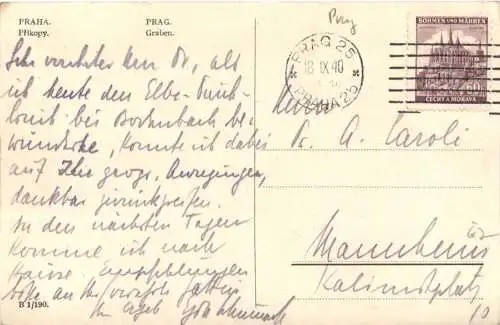 PRAHA. PRAG.
Příkopy. Graben.
Prag
PRAG 25
18 IX 40
PRAHA 25
BÖHMEN UND MÄHREN
ČECHY A MORAVA
Sehr verehrter Herr Dr, als
ich heute den Elbe-Durch
bei Bodenbach be
wunderte, konnte ich dabei
auf Ihre geogr. Anregungen,
dankbar zurückgreifen.
In den nächsten Tagen
komme ich nach
Hause. Empfehlungen
bitte an Ihre
Ihr ergeb
B 1/190.
Herrn
Dr. A. Caroli
Mannheim
Kalimitplatz
10